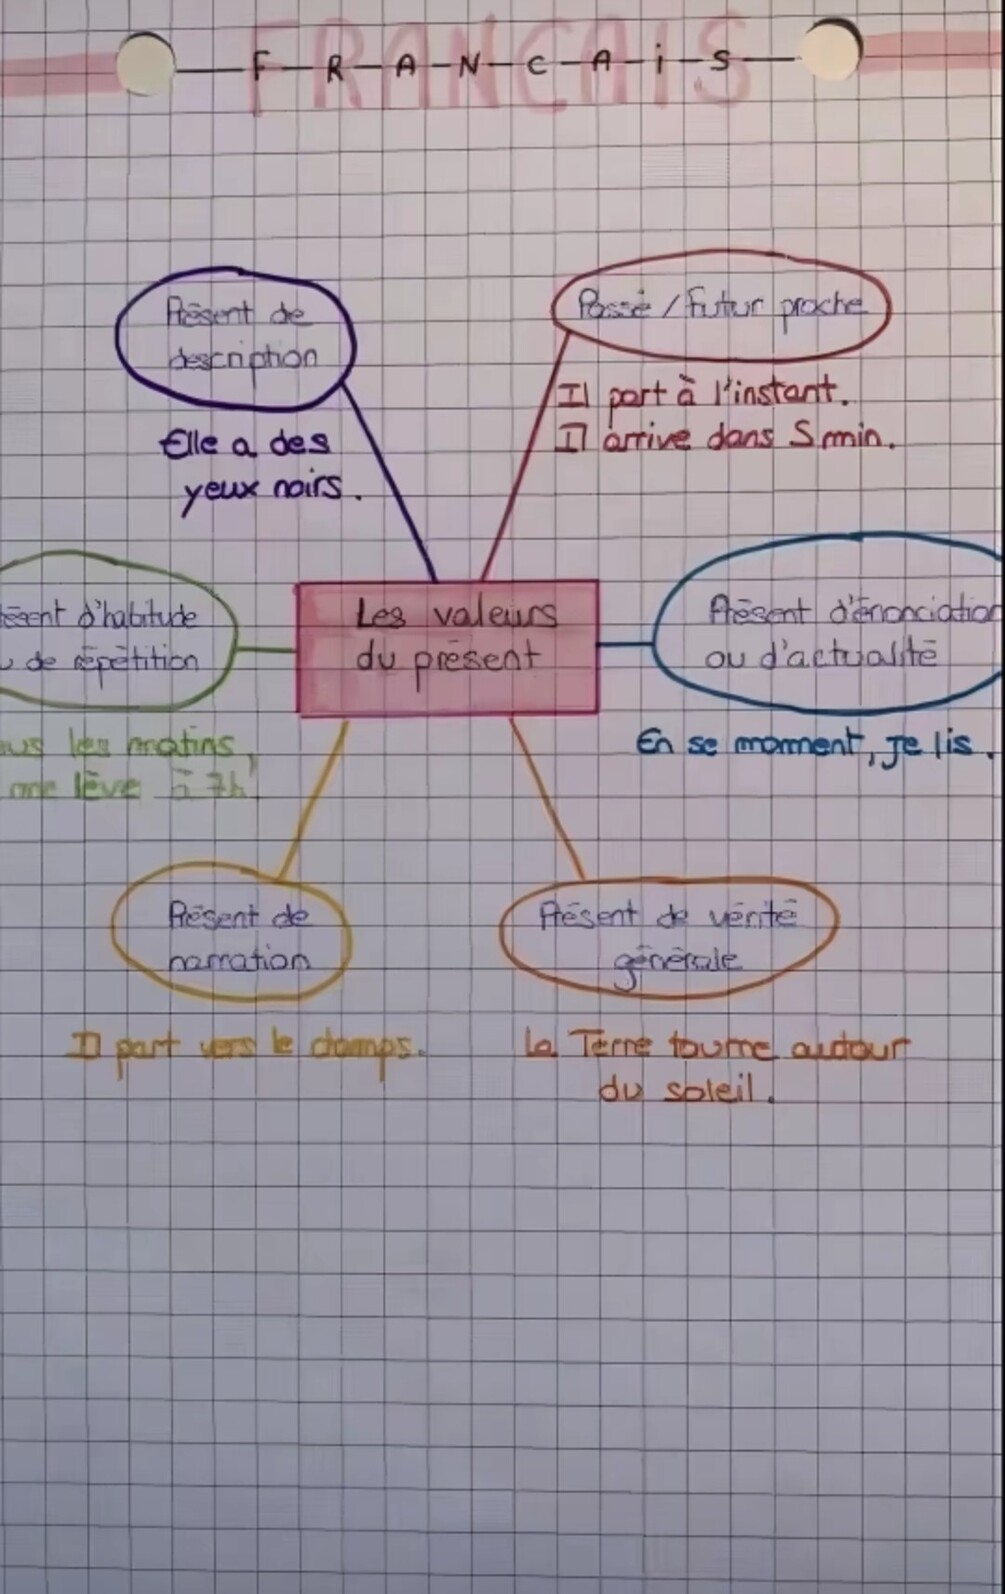 FRANCAIS
F-R-A-N-C-A-i-S
Présent de
description
Elle a des
yeux noirs.
Passé / Futur proche
Il part à l'instant.
Il arrive dans 5 min.
Les valeurs
du présent
d'habitude
de répétition
les matins,
me lève à 7h
Présent d'énonciation
ou d'actualité
En se moment, je lis.
Présent de
narration
Il part vers le champs.
Présent de vérité
générale
La Terre tourne autour
du soleil.